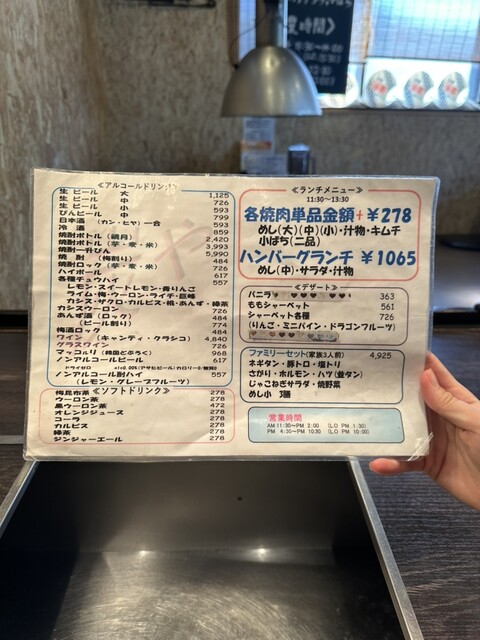 ≪アルコールドリンク≫
生 ビール 大 1,125
生 ビール 中 726
生 ビール 小 593
びんビール 中 799
日本酒 (カン・ヒヤ)一合 593
冷 酒 859
焼酎ボトル 2,420
焼酎ボトル (芋・麦・米) 3,993
焼酎一升びん 5,990
焼 酎 (梅割り) 484
焼酎ロック (芋・麦・米) 726
ハイボール 617
各種チュウハイ 557
レモン・スイートレモン・青りんご
ライム・梅・ウーロン・ライチ・巨峰
カシス・マスクロ・カルピス・桃・あんず・緑茶
カシスウーロン 726
あんず酒 (ロック) 484
(ビール割り) 774
梅酒ロック 484
ワイン (キャンティ・クラシコ) 4,840
グラスワイン 726
マッコルリ (韓国どぶろく) 968
ノンアルコールビール 617
ドライゼロ
ノンアルコール酎ハイ 557
(レモン・グレープフルーツ)
≪ソフトドリンク≫
梅昆布茶 278
ウーロン茶 278
黒ウーロン茶 472
オレンジジュース 278
コーラ 278
カルピス 278
緑茶 278
ジンジャーエール 278
≪ランチメニュー≫
11:30〜13:30
各焼肉単品金額+¥278
めし(大)(中)(小)・汁物・キムチ
小ばち(二品)
ハンバーグランチ ¥1065
めし(中)・サラダ・汁物
≪デザート≫
バニラ 363
ももシャーベット 561
シャーベット各種 726
(りんご・ミニパイン・ドラゴンフルーツ)
ファミリーセット(家族3人前) 4,925
ネギタン・豚トロ・塩トリ
さがり・ホルモン・ハツ(並タン)
じゃこねぎサラダ・焼野菜
めし小 3膳
営業時間
AM 11:30〜PM 2:00 (LO PM 1:30)
PM 4:30〜PM 10:30 (LO PM 10:00)